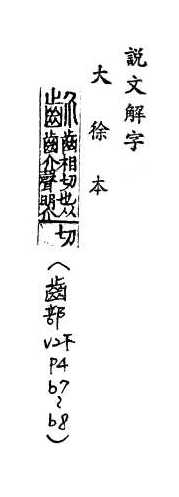 說文解字
大徐本
齘齒相切也从
齒介聲胡介
切
(齒部
V2下
P4
b7
~
b8)